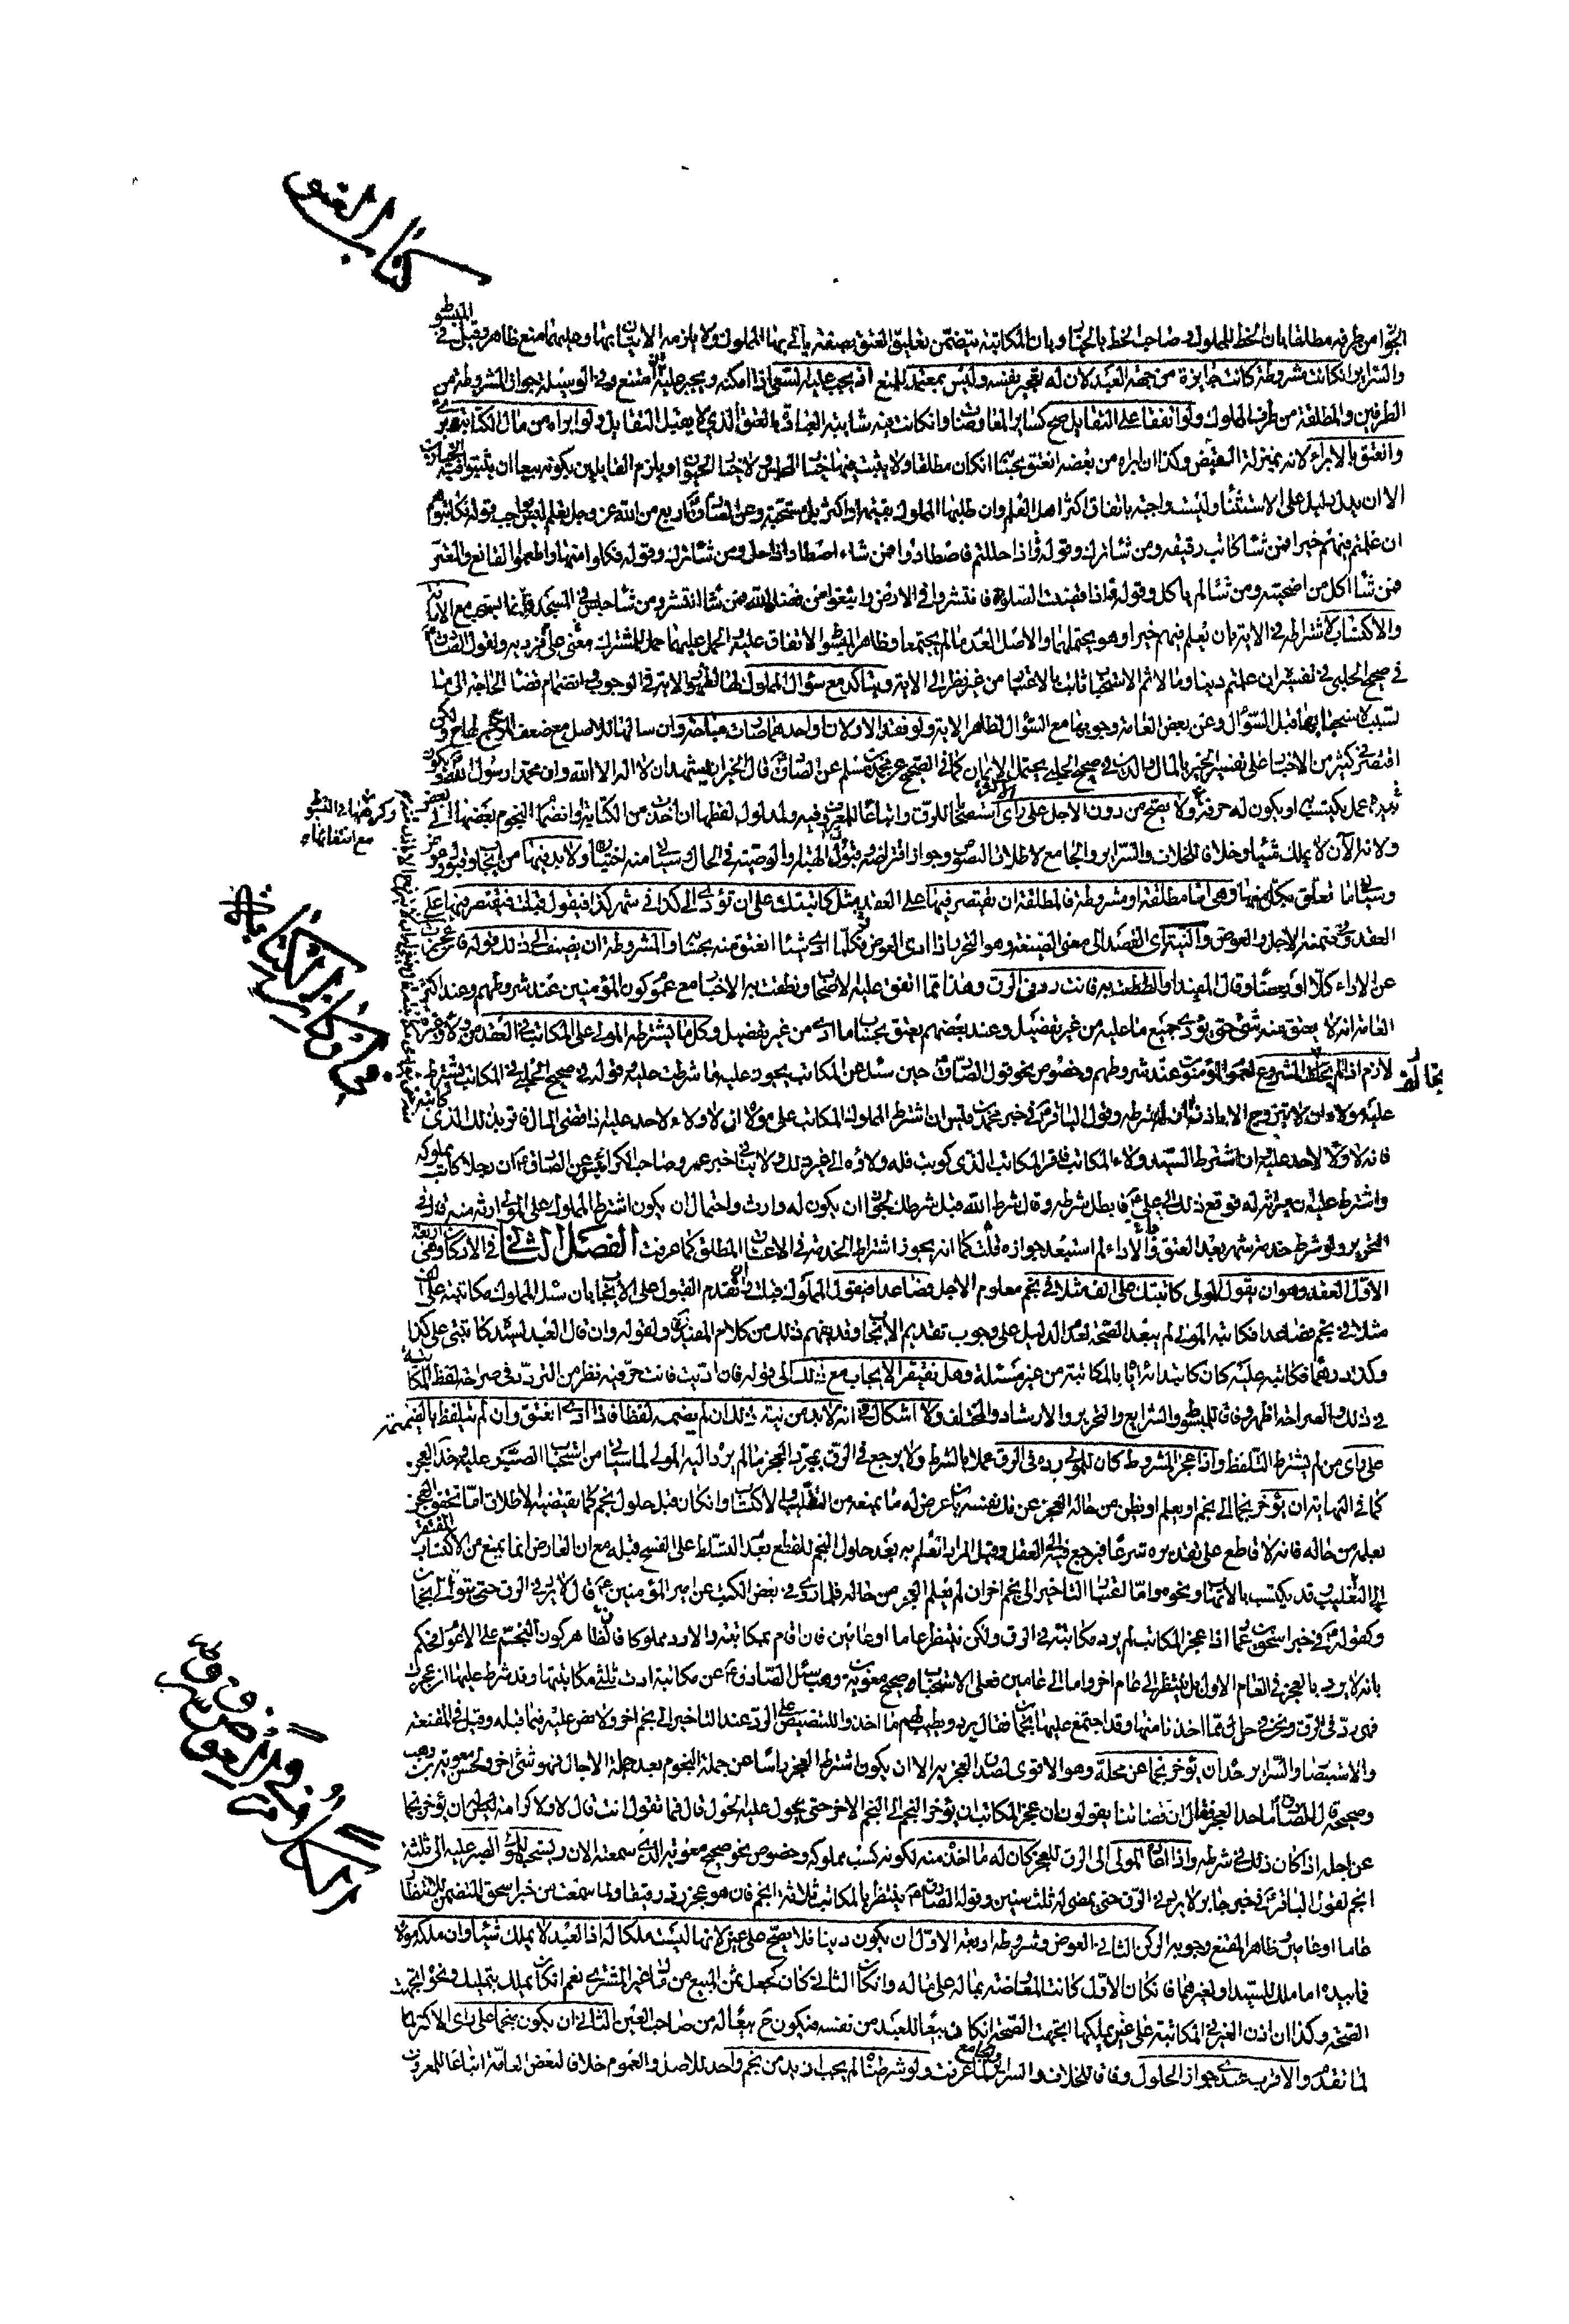 كتاب العتق
الجواز من طرفه مطلقا بان الحظ للمملوك وصاحب الحظ بالخيار وبان المكاتبة يتضمن تعليق العتق بصفة يأتى بها المملوك ولا يلزمه الاتيان بها وفيهما منع ظاهر وقيل في المبسوط
والسرائر ان كانت مشروطة كانت جايزة من جهة العبد لان له تعجيز نفسه وليس بمعتمد للمنع اذ يجب عليه السعى اذا امكنه ويجبر عليه ان امتنع وفي الوسيلة بجواز المشروطة من
الطرفين والمطلقة من طرف المملوك ولو اتفقا على التقايل صح كساير المعاوضات وان كانت فيه شايبة العبادة بالعتق الذي لا يقبل التقايل ولو ابراه من مال الكتابة برئ
وانعتق بالابراء لانه بمنزلة القبض وكذا ان ابراه من بعضه انعتق بحسابه ان كان مطلقا ولا يثبت فيها خيار المجلس ولا خيار الحيوان ويلزم القايلين بكونه بيعا ان يثبتوا فيه الخيارات
الا ان يدل دليل على الاستثناء وليست واجبة باتفاق اكثر اهل العلم وان طلبها المملوك بقيمته او اكثر بل مستحبة وعن الصادق اربع من الله عز وجل يعلم ليس بواجب قوله فكاتبوهم
ان علمتم فيهم خيرا فمن شاء كاتب رقيقه ومن شاء ترك وقوله واذا حللتم فاصطادوا فمن شاء اصطاد اذا حل ومن شاء ترك وقوله فكلوا منها واطعموا القانع والمعتر
فمن شاء اكل من اضحيته ومن شاء لم ياكل وقوله فاذا قضيت الصلوة فانتشروا في الارض وابتغوا من فضل الله فمن شاء انتشر ومن شاء جلس في المسجد وانما يستحب مع الامانة
والاكتساب لاشتراطه في الاية بان يعلم فيهم خيرا وهو يحتملهما والاصل العدم ما لم يجتمعا وظاهر المبسوط الاتفاق عليه والحمل عليهما حمل للمشترك معنى على فرديه ولقول الصادق
في صحيح الحلبي في تفسيره ان علمتم دينا ومالا ثم الاستحباب ثابت بالاعتبار من غير نظر الى الاية ويتاكد مع سؤال المملوك لها لظهور الاية في الوجوب وانضمام قضاء الحاجة الى ما
لسبب استحبابها قبل السؤال وعن بعض العامة وجوبها مع السؤال لظاهر الاية ولو فقد الاولان او احدهما صارت مباحة وان سالها للاصل مع ضعف المرجح
اقتصر في كثير من الاخبار على تفسير الخير بالمال والدين في صحيح الحلبي يحتمل الايمان كما في الصحيح عن محمد بن مسلم عن الصادق قال الخير ان يشهد ان لا اله الا الله وان محمدا رسول الله ويكون
بيده عمل يكتسب به او يكون له حرفة ولا يصح من دون الاجل على راى الاكثر استصحابا للرق واتباعا للمعروف فيه ولمدلول لفظها ان اخذت من الكتابة وانضمام النجوم بعضها الى بعض
وكرهها في المبسوط
مع انتفائهما
ولانه الآن لا يملك شيئا وخلافا للخلاف والسرائر والجامع لاطلاق النصوص وجواز اقتراضه وقبول الهبة والوصية في الحال وسياتي منه اختياره ولا بد فيها من ايجاب وقبول وعوض
وسياتي ما تعلق بكل منها وهى اما مطلقة او مشروطة فالمطلقة ان يقتصر فيها على العقد مثل كاتبتك على ان تؤدى الى كذا في شهر كذا فيقول قبلت فيقتصر فيها على
في اركان الكتابة وأحكامها
العقد ويتضمنه الاجل والعوض والنية اى القصد الى معنى الصيغة وهو التحرير اذا ادى العوض فكلما ادى شيئا انعتق منه بحسابه والمشروطة ان يضيف الى ذلك قوله فان عجزت
عن الاداء كلا او بعضا وقال المفيد او الططت به فانت رد في الرق وهذا مما اتفق عليه الاصحاب ونطقت به الاخبار مع عموم كون المؤمنين عند شروطهم وعند اكثر
العامة انه لا يعتق منه شئ حتى يؤدى جميع ما عليه من غير تفصيل وعند بعضهم يعتق بحساب ما ادى من غير تفصيل وكل ما يشترطه المولى على المكاتب في العقد
لازم اذا لم يخالف المشروع لعموم المؤمنون عند شروطهم وخصوص نحو قول الصادق حين سئل عن المكاتب يجوز عليه ما شرطت عليه وقوله في صحيح الحلبي في المكاتب يشترط
عليه مولاه ان لا يتزوج الا باذنه فان له شرطه وقول الباقر في خبر محمد بن قيس ان اشترط المملوك المكاتب على مولاه ان لا ولاء لاحد عليه اذا قضى المال فاقر بذلك الذى كاتبه
فانه لا ولاء لاحد عليه وان اشترط السيد ولاء المكاتب فاقر المكاتب الذى كوتب فله ولاؤه الى غير ذلك ولا ينافي خبر عمرو صاحب الكرابيس عن الصادق ان رجلا كاتب مملوكه
واشترط عليه ان ميراثه له فرفع ذلك الى على فابطل شرطه وقال شرط الله قبل شرطك لجواز ان يكون له وارث واحتمال ان يكون اشترط المملوك على المولى ارثه منه قال في
التحرير ولو شرط خدمة شهر بعد العتق والاداء لم استبعد جوازه قلت كما انه يجوز اشتراط الخدمة في الاعتاق المطلق كما عرفت الفصل الثاني في الاركان وهى اربعة
الاول العقد وهو ان يقول المولى كاتبتك على الف مثلا في نجم معلوم الاجل فصاعدا فيقول المملوك قبلت وان تقدم القبول على الايجاب بان سئل المملوك مكاتبته على الف
مثلا في نجم فصاعدا فكاتبه المولى لم يبعد الصحة لعدم الدليل على وجوب تقديم الايجاب وقد يفهم ذلك من كلام المفيد لقوله وان قال العبد لسيده كاتبنى على كذا
وكذا درهما فكاتبه عليه كان كابتدائه اياه بالمكاتبة من غير مسئلة وهل يفتقر الايجاب مع ذلك الى قوله فان اديت فانت حر فيه نظر من التردد في صراحة لفظ المكاتبة
في ذلك والصراحة اظهر وفاقا للمبسوط والشرايع والتحرير والارشاد والمختلف ولا اشكال في انه لا بد من نية ذلك ان لم يضمه لفظا فاذا ادى انعتق وان لم يتلفظ بالضميمة
على راى من لم يشترط التلفظ واذا عجز المشروط كان للمولى رده في الرق عملا بالشرط ولا يرجع في الرق بمجرد العجز ما لم يرده اليه المولى لما سياتي من استحباب الصبر عليه وحد العجز
كما في النهاية ان يؤخر نجما الى نجم او يعلم او يظن من حاله العجز عن فك نفسه بان عرض له ما يمنعه من التقليب والاكتساب وان كان قبل حلول نجم كما يقتضيه الاطلاق اما تحقق العجز
بعلمه من حاله فانه لا قاطع على تقديره شرعا فيرجع فيه الى العقل وقيل المراد العلم به بعد حلول النجم للقطع بعدم التسلط على الفسخ قبله مع ان العارض انما يمنع من الاكتساب المفتقر
الى التقليب وقد يكتسب بالاتهاب ونحوه واما اعتبار التاخير الى نجم اخر ان لم يعلم العجز من حاله فلما روى في بعض الكتب عن امير المؤمنين قال لا يرد في الرق حتى يتوالى نجمان
وكقوله في خبر اسحق بن عمار اذا عجز المكاتب لم يرد مكاتبته في الرق ولكن ينتظر عاما او عامين فان قام بمكاتبته والا رد مملوكا فالظاهر كون التنجيم على الاعوام فحكم
بانه لا يرد بالعجز في العام الاول بل ينتظر الى عام اخر واما الى عامين فعلى الاستحباب وصحيح معوية بن وهب سئل الصادق عن مكاتبة ادت ثلثي مكاتبتها وقد شرط عليها ان عجزت
فهى رد في الرق ونحن في حل مما اخذنا منها وقد اجتمع عليها نجمان فقال ترد ويطيب لهم ما اخذوا للتنصيص على الرق عند التاخير الى نجم اخر ولا نص عليه فيما قبله وقيل في المقنعة
والاستبصار والسرائر حده ان يؤخر نجما عن محله وهو الاقوى لصدق العجز به الا ان يكون اشترط العجز راسا عن جملة النجوم بعد جملة الاجال فهو شئ اخر ولحسن معوية بن وهب
الركن الثاني في العوض
وصحيحه قال للصادق ما حد العجز فقال ان قضاتنا يقولون ان عجز المكاتب ان يؤخر النجم الى النجم الاخر حتى يحول عليه الحول قال فما تقول انت قال لا ولا كرامة ليس له ان يؤخر نجما
عن اجله اذا كان ذلك في شرطه واذا اعاده المولى الى الرق للعجز كان له ما اخذ منه لكونه كسب مملوكه وخصوص نحو صحيح معوية الذى سمعته الان ويستحب للمولى الصبر عليه الى ثلثة
انجم لقول الباقر في خبر جابر لا يرد في الرق حتى يمضى له ثلث سنين وقول الصادق ينتظر بالمكاتب ثلاثة انجم فان هو عجز رد رقيقا ولما سمعت من خبر اسحق المتضمن للانتظار
عاما او عامين وظاهر المقنع وجوبه الركن الثاني العوض وشروطه اربعة الاول ان يكون دينا فلا يصح على عين لانها ليست ملكا له اذ العبد لا يملك شيئا وان ملكه مولاه
فما بيده اما ملك للسيد او لغيرهما فان كان الاول كانت المعاوضة بماله على ماله وان كان الثاني كان كجعل ثمن المبيع من مال غير المشترى نعم ان كان يملك بتمليك ونحوه اتجهت
الصحة وكذا ان اذن الغير في المكاتبة على عين يملكها اتجهت الصحة ان كان بيعا للعبد من نفسه فيكون ح بيعا له من صاحب العين الثاني ان يكون منجما على راى الاكثر كما
لما تقدم والاقرب عندى جواز الحلول وفاقا للخلاف والسرائر والجامع لما عرفت ولو شرطناه لم يجب ازيد من نجم واحد للاصل والعموم خلافا لبعض العامة اتباعا للمعروف